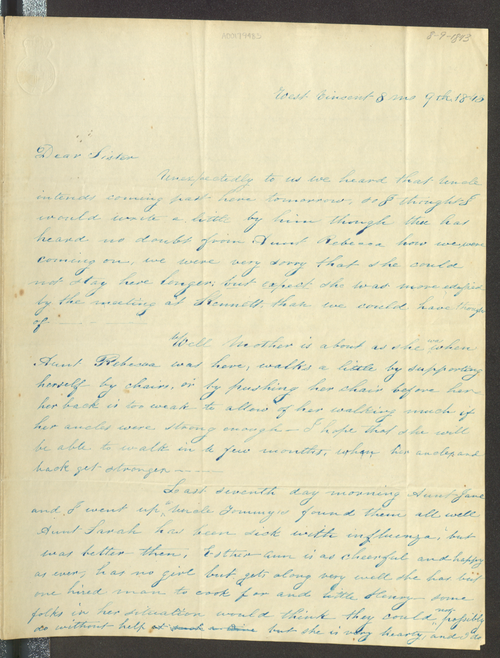 8-9-1843
West Vincent 8 mo 9th 1843
Dear Sister
Unexpectedly to us we heard that uncle
intends coming past here tomorrow, so I thought I
would write a little by him though thee has
heard no doubt from Aunt Rebecca how we were
coming on, we were very sorry that she could
not stay here longer, but expect she was more
by the meeting at Kennett, than we could have thought
of
Well Mother is about as she was when
Aunt Rebecca was here, walks a little by supporting
herself by chairs, or by pushing her chair before her
her back is too weak to allow of her walking much if
her ancles were strong enough — I hope that she will
be able to walk in a few months, when her ancles and
back get stronger
Last seventh day morning Aunt Jane
and I went up, uncle Jimmys found them all well
Aunt Sarah has been sick with influenza, but
was better then, Esther Ann is as cheerful and happy
as ever, has no girl but gets along very well she has but
one hired man to cook for and little Henry some
folks in her situation would think they could not possibly
do without help at such a time but she is very hearty, and I do